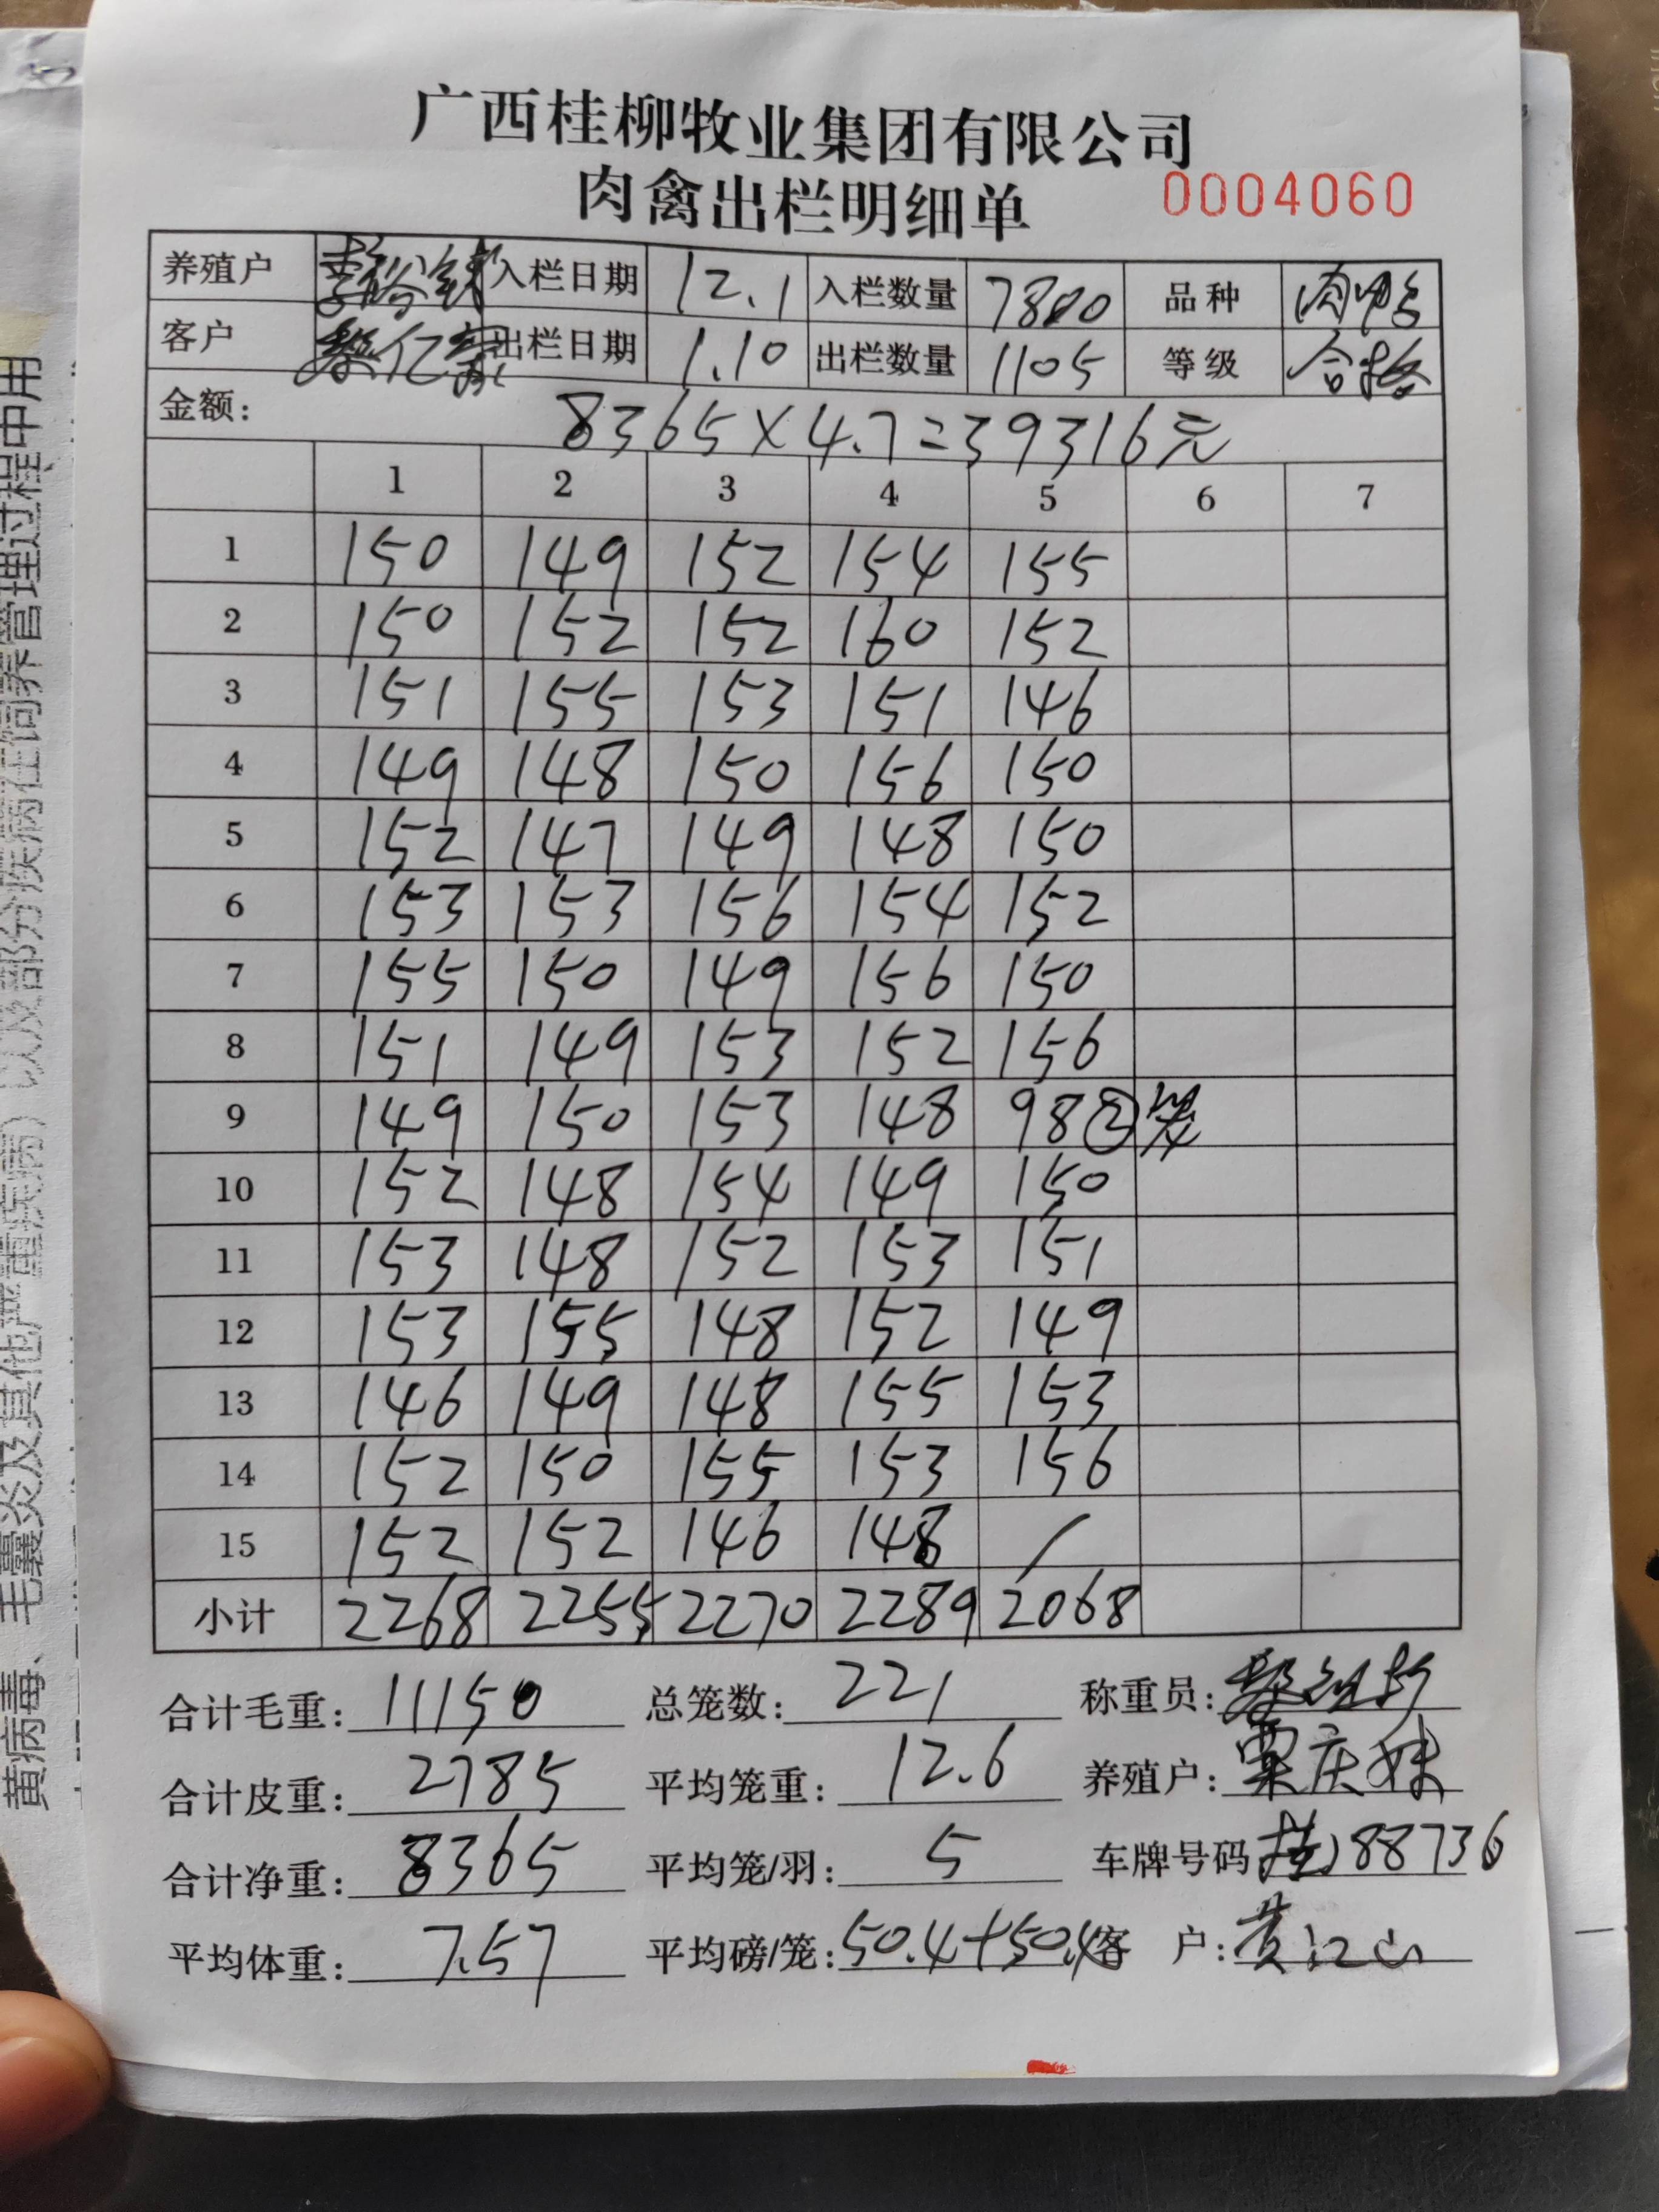 广西桂柳牧业集团有限公司
肉禽出栏明细单 0004060
养殖户 入栏日期 12.1 入栏数量 7800 品种 肉鸭
客户 出栏日期 1.10 出栏数量 1105 等级 合格
金额: 8365×4.7=39316元
1 2 3 4 5 6 7
1 150 149 152 154 155
2 150 152 152 160 152
3 151 155 153 151 146
4 149 148 150 156 150
5 152 147 149 148 150
6 153 153 156 154 152
7 155 150 149 156 150
8 151 149 153 152 156
9 149 150 153 148 98②笼
10 152 148 154 149 150
11 153 148 152 153 151
12 153 155 148 152 149
13 146 149 148 155 153
14 152 150 155 153 156
15 152 152 146 148 /
小计 2268 2255 2270 2289 2068
合计毛重: 11150 总笼数: 221 称重员:
合计皮重: 2785 平均笼重: 12.6 养殖户: 覃庆妹
合计净重: 8365 平均笼/羽: 5 车牌号码 桂J88736
平均体重: 7.57 平均磅/笼: 50.4+50.4 客 户: 黄江山
黄病毒、毛囊炎及其他严重疾病）以及部分疾病在饲养管理过程中用